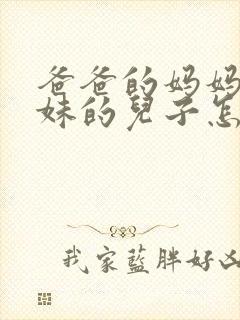 爸爸的妈妈
妹的兒子怎
我家藍胖好凶